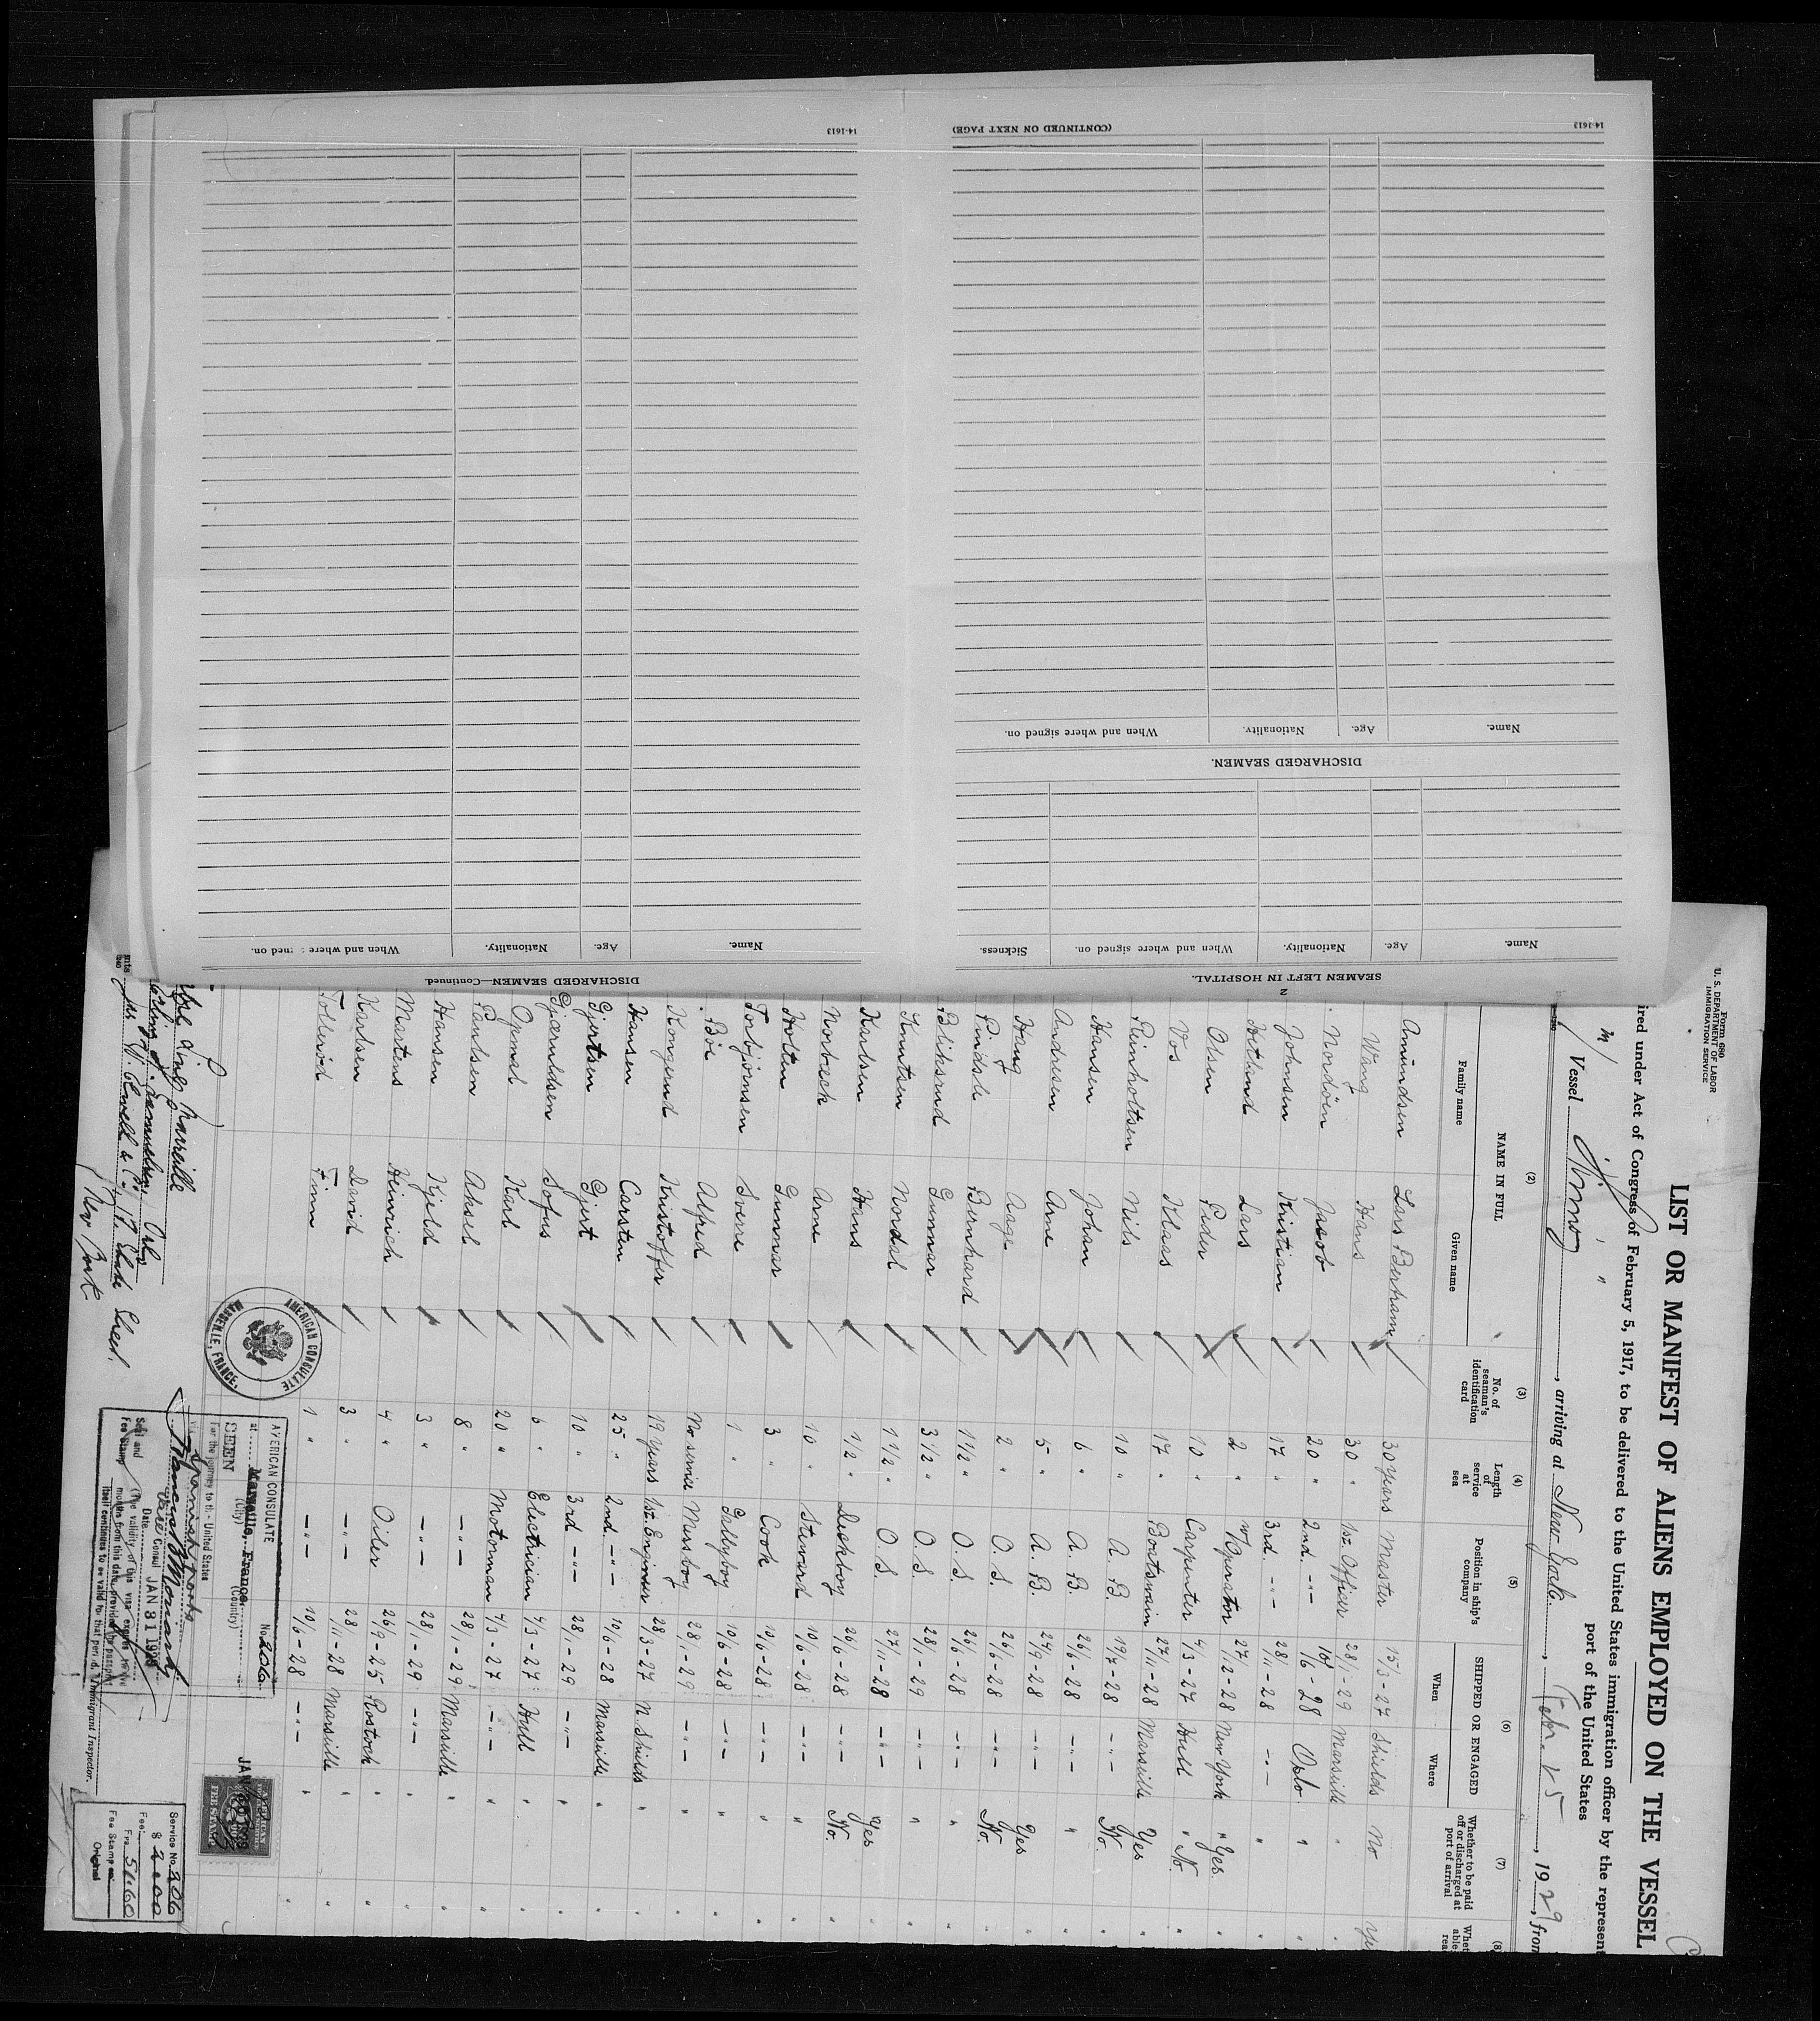 14-1613
(CONTINUED ON NEXT PAGE)
14-1613
Name.
Age.
Nationality.
When and where signed on.
DISCHARGED SEAMEN.
Name.
Age.
Nationality.
When and where signed on.
Sickness.
SEAMEN LEFT IN HOSPITAL.
2
Name.
Age.
Nationality.
When and where signed on.
DISCHARGED SEAMEN—Continued.
Form 680
U. S. DEPARTMENT OF LABOR
IMMIGRATION SERVICE
LIST OR MANIFEST OF ALIENS EMPLOYED ON THE VESSEL
ired under Act of Congress of February 5, 1917, to be delivered to the United States immigration officer by the represent
port of the United States
Vessel , arriving at New York , Febr. 25 , 1929, from
(2) (3) (4) (5) (6) (7) (8)
NAME IN FULL
Family name Given name
No. of seaman's identification card
Length of service at sea
Position in ship's company
SHIPPED OR ENGAGED
When Where
Whether to be paid off or discharged at port of arrival
Amundsen Lars Bertram 30 years Master 15/3-27 Shields No
Wang Hans 30 " 1st Officer 28/1-29 Marseille "
Nordöen Jacob 20 " 2nd. -"- 16/6-28 Oslo "
Johnsen Kristian 17 " 3rd. -"- 28/11-28 -"- "
Hetland Lars 2 " W/Operator 27/12-28 New York " Yes
Olsen Peder 10 " Carpenter 4/3-27 Hull " No.
Vos Klaas 17 " Boatswain 27/11-28 Marseille Yes
Reinholtsen Nils 10 " A. B. 19/7-28 -"- No.
Hansen Johan 6 " A. B. 26/6-28 -"- "
Andresen Arne 5 " A. B. 24/9-28 -"-
Haug Aage 2 " O. S. 26/6-28 -"- Yes
Rindsli Bernhard 1 1/2 " O. S. 26/6-28 -"- No.
Bliksrud Gunnar 3 1/2 " O. S. 28/1-29 -"- "
Knutsen Nordal 1 1/2 " O. S. 27/11-28 -"- Yes
Karlsen Hans 1/2 " Deckboy 26/6-28 -"- No.
Norbeck Arne 10 " Steward 10/6-28 -"- "
Holten Gunnar 3 " Cook 10/6-28 -"- "
Torbjörnsen Sverre 1 " Galleyboy 10/6-28 -"- "
Böe Alfred No service Messboy 28/1-29 -"- "
Kongerud Kristoffer 19 years 1st. Engineer 28/3-27 N. Shields "
Hansen Carsten 25 " 2nd -"- 10/6-28 Marseille "
Gjertsen Gjert 10 " 3rd -"- 28/1-29 -"- "
Gjæruldsen Sofus 6 " Electrician 4/3-27 Hull "
Opmal Karl 20 " Motorman 4/3-27 -"- "
Paulsen Aksel 8 " -"- 28/1-29 Marseille "
Hansen Kjeld 3 " -"- 28/1-29 -"- "
Martens Heinrich 4 " Oiler 26/9-25 Rostock "
Karlsen David 3 " -"- 28/11-28 Marseille "
Tolleröd Finn 1 " -"- 10/6-28 -"- "
AMERICAN CONSULATE
MARSEILLE, FRANCE.
AMERICAN CONSULATE No. 206
at Marseille, France.
(City) (Country)
SEEN
For the journey to the United States
via Spanish ports
Vice Consul
Date JAN 31 1929
(The validity of this visa expires twelve
months from this date, provided the passport
itself continues to be valid for that period.)
Seal and
Fee Stamp
Immigrant Inspector.
Marseille
Oslo
New York
Service No. 206
Fee: $ 2.00
Frs. 51.60
Fee Stamp on
Original
AMERICAN
FEE STAMP